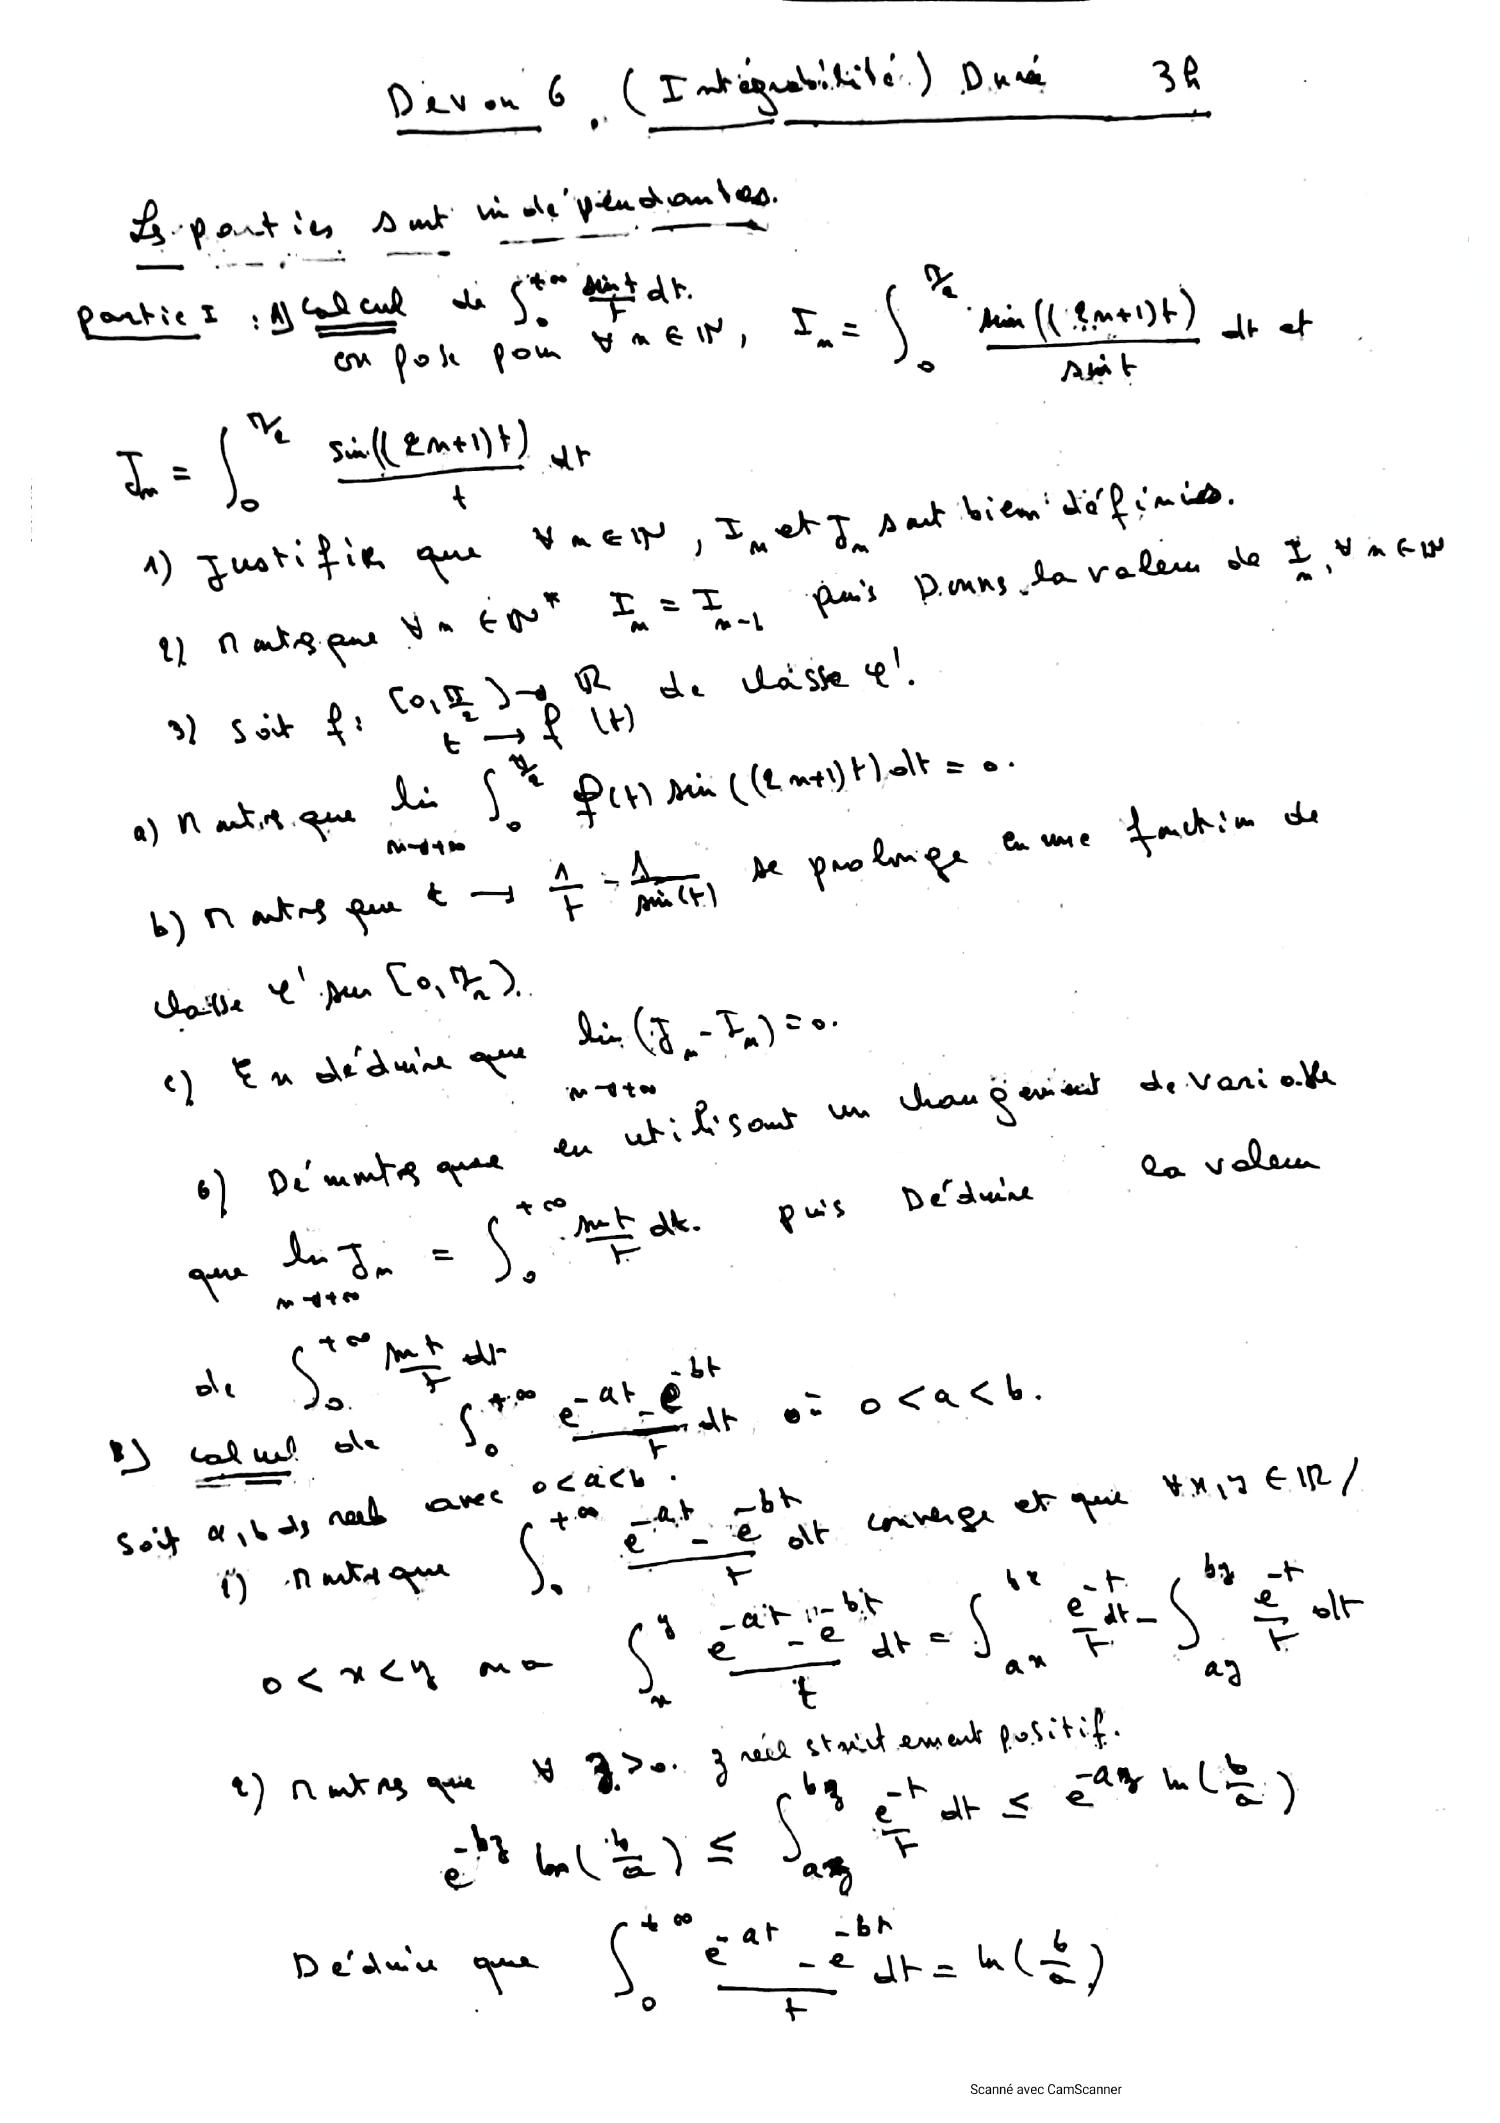 Devoir 6. (Intégrabilité) Durée 3h
Les parties sont indépendantes.
partie I : A) Calcul de ∫_0^{+∞} sin t / t dt.
on pose pour ∀ n ∈ ℕ, I_n = ∫_0^{π/2} sin((2n+1)t) / sin t dt et
J_n = ∫_0^{π/2} sin((2n+1)t) / t dt
1) Justifier que ∀ n ∈ ℕ, I_n et J_n sont bien définies.
2) Montrer que ∀ n ∈ ℕ* I_n = I_{n-1} puis Donner la valeur de I_n, ∀ n ∈ ℕ
3) Soit f : [0, π/2] → ℝ de classe C¹.
t → f(t)
a) Montrer que lim_{n→+∞} ∫_0^{π/2} f(t) sin((2n+1)t) dt = 0.
b) Montrer que t → 1/t - 1/sin(t) se prolonge en une fonction de
classe C¹ sur [0, π/2].
c) En déduire que lim_{n→+∞} (J_n - I_n) = 0.
6) Démontrer que en utilisant un changement de variable
que lim_{n→+∞} J_n = ∫_0^{+∞} sin t / t dt. puis Déduire la valeur
de ∫_0^{+∞} sin t / t dt
B) Calcul de ∫_0^{+∞} (e^{-at} - e^{-bt}) / t dt où 0 < a < b.
Soit a, b ds reels avec 0 < a < b.
1) Montrer que ∫_0^{+∞} (e^{-at} - e^{-bt}) / t dt converge et que ∀ x, y ∈ ℝ /
0 < x < y on a ∫_x^y (e^{-at} - e^{-bt}) / t dt = ∫_{ax}^{bx} e^{-t} / t dt - ∫_{ay}^{by} e^{-t} / t dt
2) Montrer que ∀ z > 0. z réel strictement positif.
e^{-bz} ln(b/a) ≤ ∫_{az}^{bz} e^{-t} / t dt ≤ e^{-az} ln(b/a)
Déduire que ∫_0^{+∞} (e^{-at} - e^{-bt}) / t dt = ln(b/a)
Scanné avec CamScanner